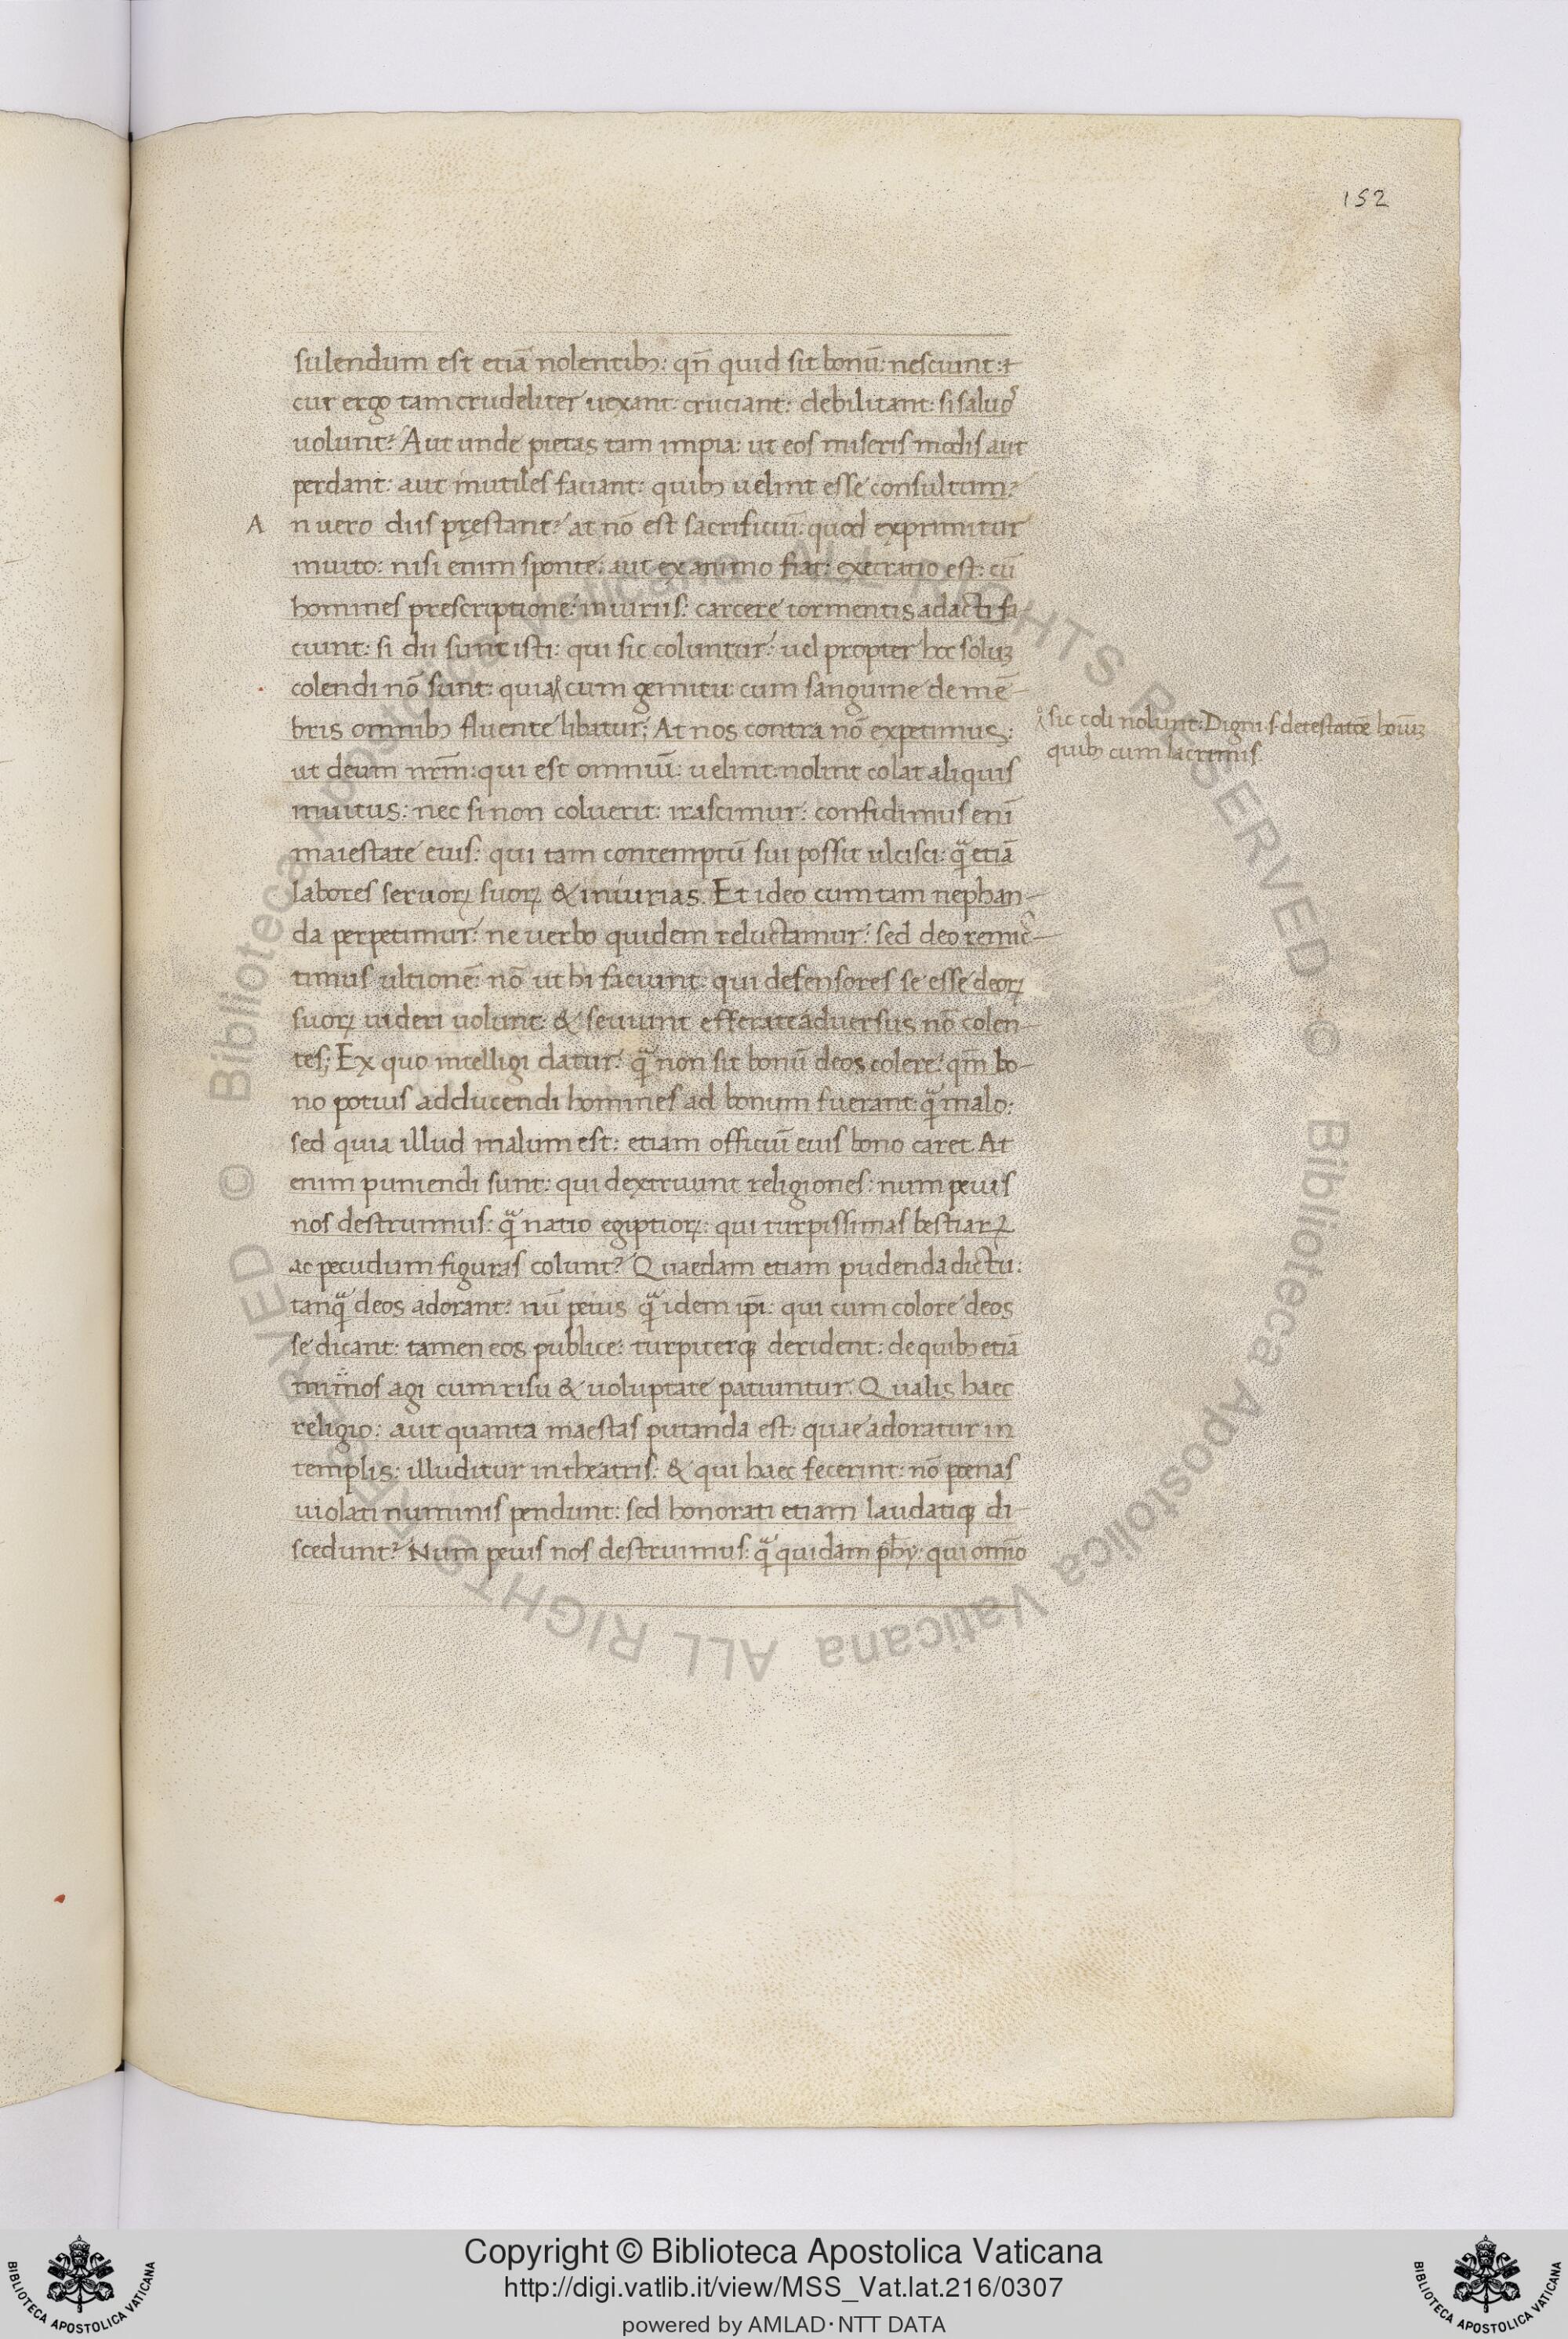 152
sulendum est etiā nolentibꝫ: qn̄ quid sit bonū: nesciunt:
cur ergo tam crudeliter uexant: cruciant: debilitant: si saluos
uolunt? Aut unde pietas tam impia: ut eos miseris modis aut
perdant: aut inutiles faciant: quibꝫ uelint esse consultum?
A n uero diis pręstant? at nō est sacrificiū: quod exprimitur
inuito: nisi enim sponte: aut ex animo fiat: execratio est: cū
homines prescriptione: iniuriis: carcere tormentis adacti fa
ciunt: si dii sunt isti: qui sic coluntur: uel propter hoc soluꝫ
colendi nō sunt: quia cum gemitu cum sanguine de mē-
bris omnibꝫ fluente libatur; At nos contra nō expetimus:
sic coli nolunt: Digni s. detestatōe hoīuꝫ
quibꝫ cum lacrimis.
ut deum nr̄m: qui est omniū: uelint: nolint colat aliquis
inuitus: nec si non coluerit: irascimur: confidimus eni
maiestate eius: qui tam contemptū sui possit ulcisci: qᷓ etiā
labores seruoꝝ suoꝝ & iniurias. Et ideo cum tam nephan-
da perpetimur: ne uerbo quidem reluctamur: sed deo remic-
timus ultionē: nō ut hi faciunt: qui defensores se esse deoꝝ
suoꝝ uideri uolunt: & seuiunt efferate aduersus nō colen-
tes; Ex quo intelligi datur: qᷓ non sit bonū deos colere: qm̄ bo-
no potius adducendi homines ad bonum fuerant: qᷓ malo:
sed quia illud malum est: etiam officiū eius bono caret. At
enim puniendi sunt: qui dextruunt religiones: num peius
nos destruimus: qᷓ natio egiptioꝝ: qui turpissimas bestiaꝝ
ac pecudum figuras colunt? Quaedam etiam pudenda dictu:
tanqᷓ deos adorant? nū peius qᷓ idem ip̄i: qui cum colore deos
se dicant: tamen eos publice: turpiterqꝫ derident: de quibꝫ etiā
mimos agi cum risu & uoluptate patiuntur. Qualis haec
religio: aut quanta maestas putanda est: quae adoratur in
templis: illuditur in theatris: & qui haec fecerint: nō poenas
uiolati numinis pendunt: sed honorati etiam laudatiqꝫ di-
scedunt? Num peius nos destruimus: qᷓ quidam ph̄y: qui omīo
Copyright © Biblioteca Apostolica Vaticana
http://digi.vatlib.it/view/MSS_Vat.lat.216/0307
powered by AMLAD · NTT DATA
BIBLIOTECA APOSTOLICA VATICANA
BIBLIOTECA APOSTOLICA VATICANA
© Biblioteca Apostolica Vaticana ALL RIGHTS RESERVED © Biblioteca Apostolica Vaticana ALL RIGHTS RESERVED